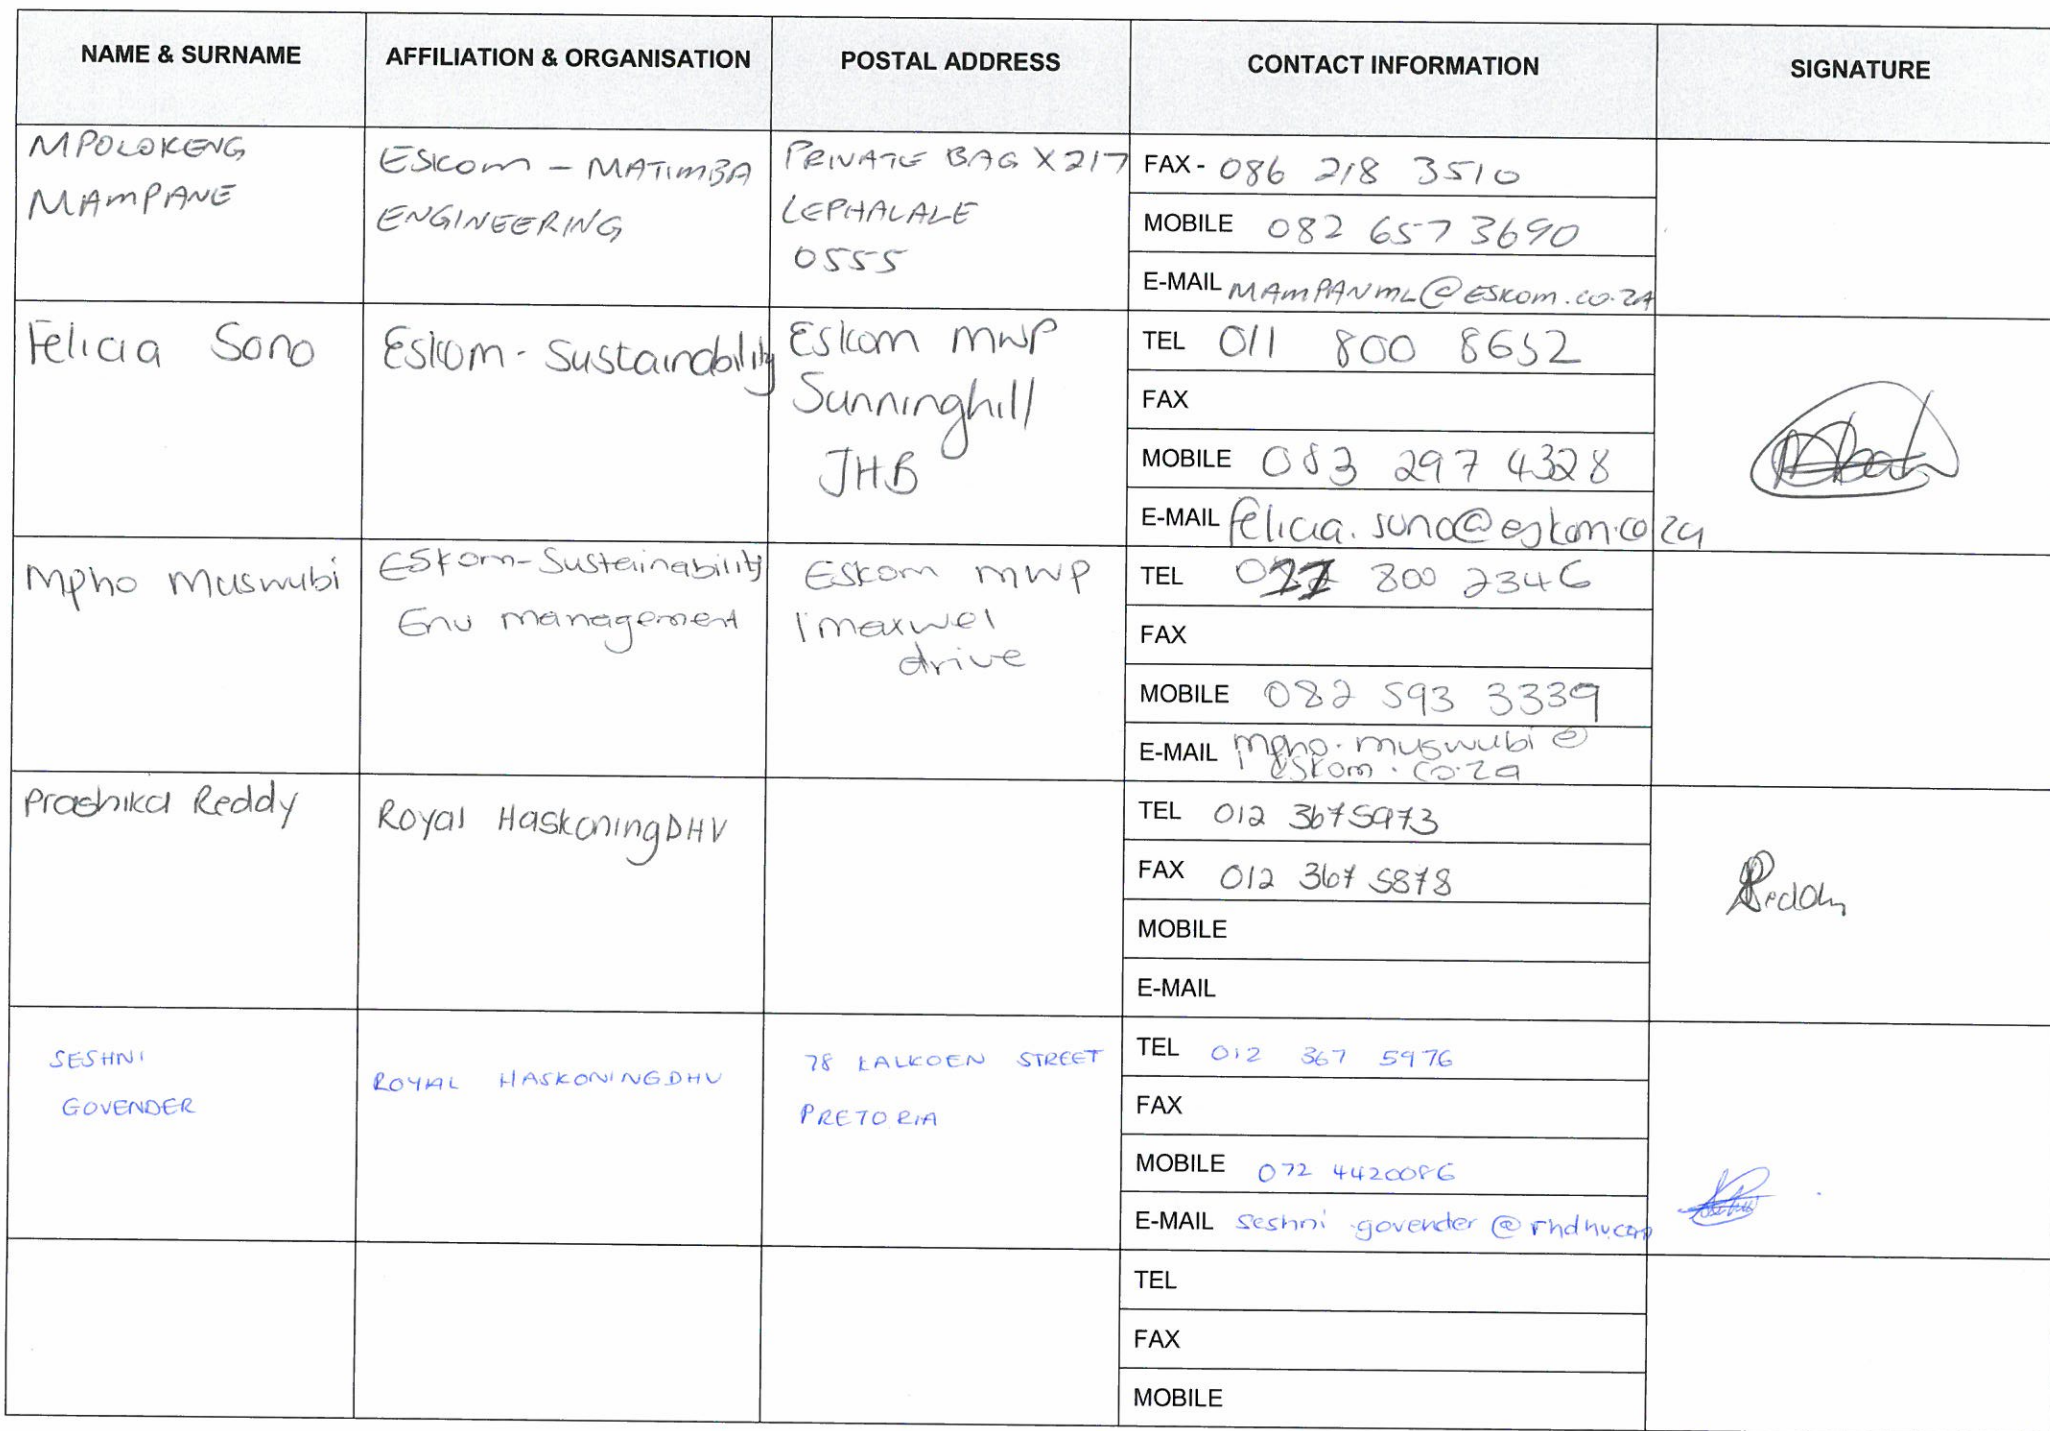 NAME & SURNAME
AFFILIATION & ORGANISATION
POSTAL ADDRESS
CONTACT INFORMATION
SIGNATURE
MPOLOKENG
MAMPANE
ESKOM - MATIMBA
ENGINEERING
PRIVATE BAG X217
LEPHALALE
0555
FAX - 086 218 3510
MOBILE 082 657 3690
E-MAIL MAMPANML@ESKOM.CO.ZA
Felicia Sono
Eskom - Sustainability
Eskom MWP
Sunninghill
JHB
TEL 011 800 8652
FAX
MOBILE 083 297 4328
E-MAIL felicia.sono@eskom.co.za
Mpho Muswubi
Eskom-Sustainability
Env management
Eskom MWP
1 maxwel
drive
TEL 800 2346
FAX
MOBILE 082 593 3339
E-MAIL mpho.muswubi@
eskom.co.za
Prashika Reddy
Royal HaskoningDHV
TEL 012 3675973
FAX 012 367 5878
MOBILE
E-MAIL
Reddy
SESHNI
GOVENDER
ROYAL HASKONINGDHV
78 KALKOEN STREET
PRETORIA
TEL 012 367 5976
FAX
MOBILE 072 4420086
E-MAIL seshni.govender@rhdhv.com
TEL
FAX
MOBILE